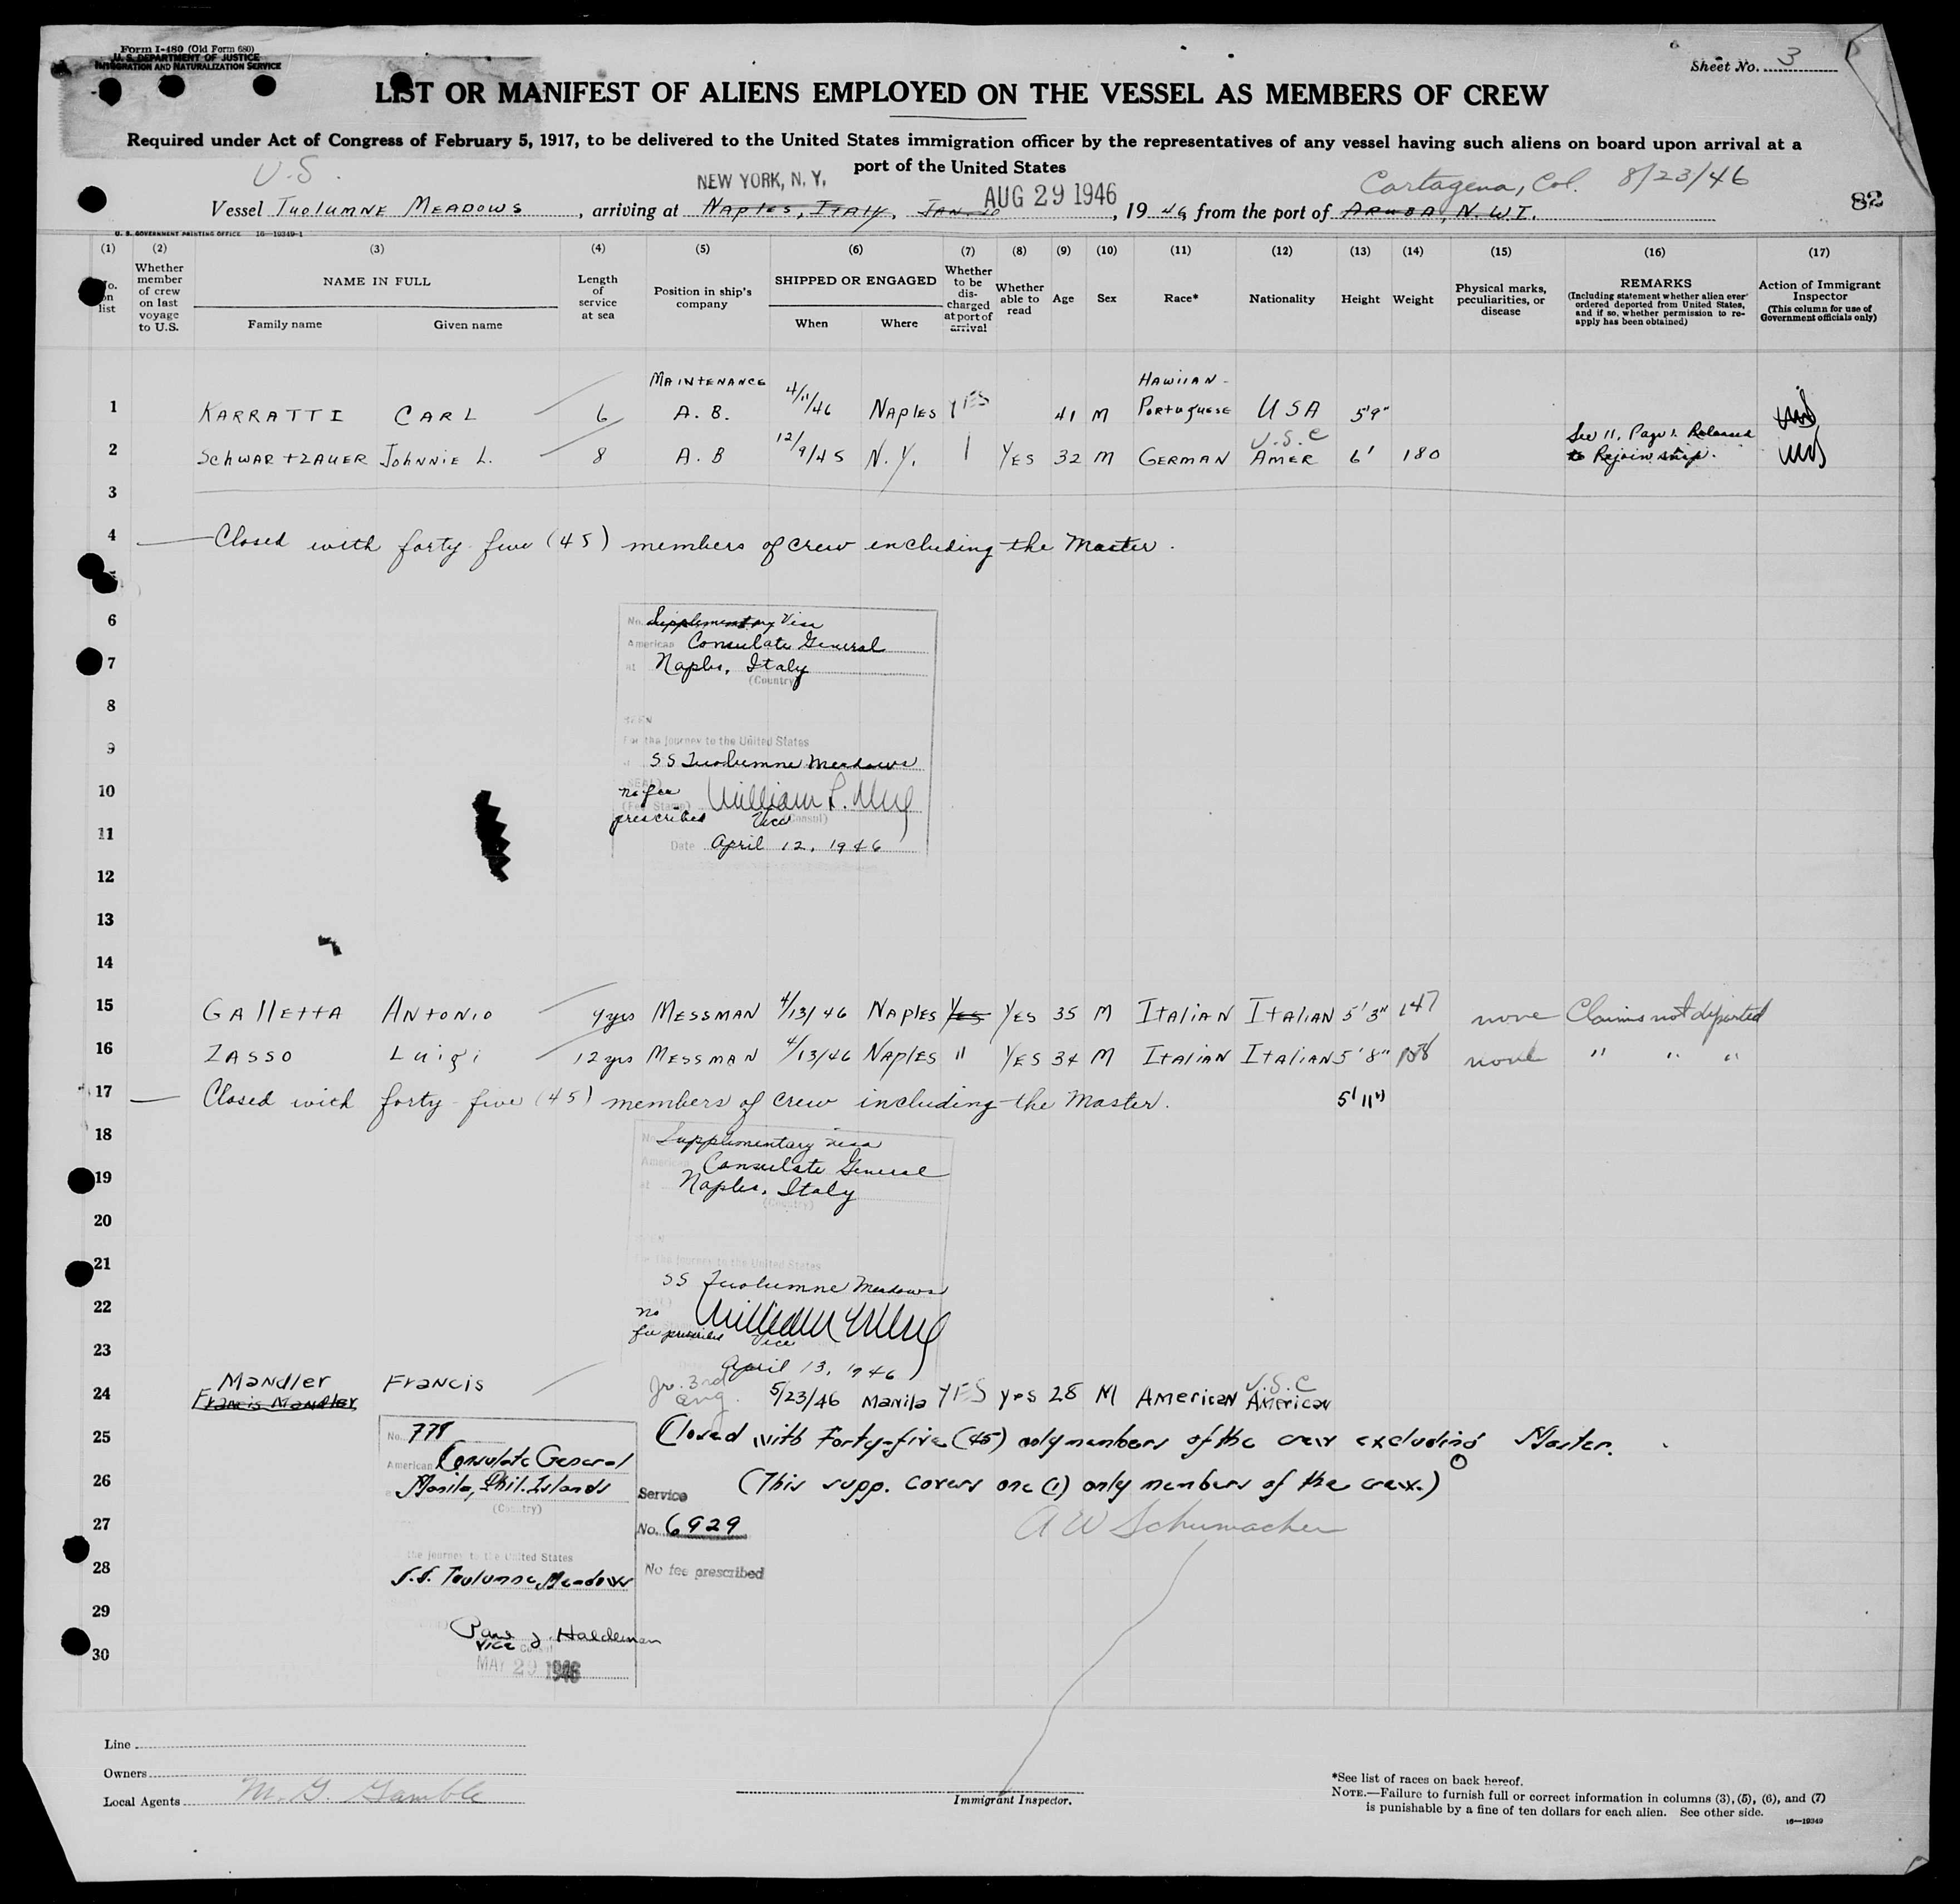 Form I-480 (Old Form 680)
U. S. DEPARTMENT OF JUSTICE
IMMIGRATION AND NATURALIZATION SERVICE
Sheet No. 3
LIST OR MANIFEST OF ALIENS EMPLOYED ON THE VESSEL AS MEMBERS OF CREW
Required under Act of Congress of February 5, 1917, to be delivered to the United States immigration officer by the representatives of any vessel having such aliens on board upon arrival at a
port of the United States
U.S. NEW YORK, N. Y. AUG 29 1946 Cartagena, Col. 8/23/46
Vessel TUOLUMNE MEADOWS, arriving at NAPLES, ITALY, JAN 10, 1946, from the port of ARUBA, N.W.I. 82
U. S. GOVERNMENT PRINTING OFFICE 16—19349-1
(1) (2) (3) (4) (5) (6) (7) (8) (9) (10) (11) (12) (13) (14) (15) (16) (17)
No. on list
Whether member of crew on last voyage to U.S.
NAME IN FULL
Family name Given name
Length of service at sea
Position in ship's company
SHIPPED OR ENGAGED
When Where
Whether to be discharged at port of arrival
Whether able to read
Age
Sex
Race*
Nationality
Height
Weight
Physical marks, peculiarities, or disease
REMARKS
(Including statement whether alien ever ordered deported from United States, and if so, whether permission to re-apply has been obtained)
Action of Immigrant Inspector
(This column for use of Government officials only)
MAINTENANCE HAWIIAN-
1 KARRATTI CARL 6 A.B. 4/11/46 NAPLES YES 41 M PORTUGUESE USA 5'9"
U.S.C See 11, Page 1. Released
2 SCHWARTZAUER JOHNNIE L. 8 A.B 12/9/45 N.Y. YES 32 M GERMAN AMER 6' 180 to Rejoin ship.
3
4 Closed with forty-five (45) members of crew including the Master.
6
No. Supplementary Visa
American Consulate General
7
at Naples, Italy
(Country)
8
SEEN
9
For the journey to the United States
SS Tuolumne Meadows
10
(SEAL) no fee
(Fee Stamp) William L.
prescribed Vice (Consul)
11
Date April 12, 1946
12
13
14
15 GALLETTA ANTONIO 4 yrs MESSMAN 4/13/46 NAPLES YES YES 35 M ITALIAN ITALIAN 5'3" 147 none Claims not deported
16 ZASSO LUIGI 12 yrs MESSMAN 4/13/46 NAPLES " YES 34 M ITALIAN ITALIAN 5'8" 158 none " " "
17 Closed with forty-five (45) members of crew including the Master. 5'11"
18
No. Supplementary visa
American Consulate General
19
at Naples, Italy
(Country)
20
21
For the journey to the United States
SS Tuolumne Meadows
22
no
fee prescribed Vice
23
April 13, 1946
Mandler Francis Jr. 3rd U.S.C
24 Francis Mandler eng. 5/23/46 Manila YES yes 28 M American American
25 No. 778 Closed with Forty-five (45) only members of the crew excluding Master.
American Consulate General
26 Manila, Phil. Islands Service (This supp. covers one (1) only members of the crew.)
(Country)
27 No. 6929 A W Schumacher
the journey to the United States
28 S.S. Toulumne Meadows No fee prescribed
29
Paul J. Haldeman
Vice Consul
30 MAY 29 1946
Line
Owners
Local Agents M. G. Gamble
Immigrant Inspector.
*See list of races on back hereof.
NOTE.—Failure to furnish full or correct information in columns (3), (5), (6), and (7)
is punishable by a fine of ten dollars for each alien. See other side.
16—19349